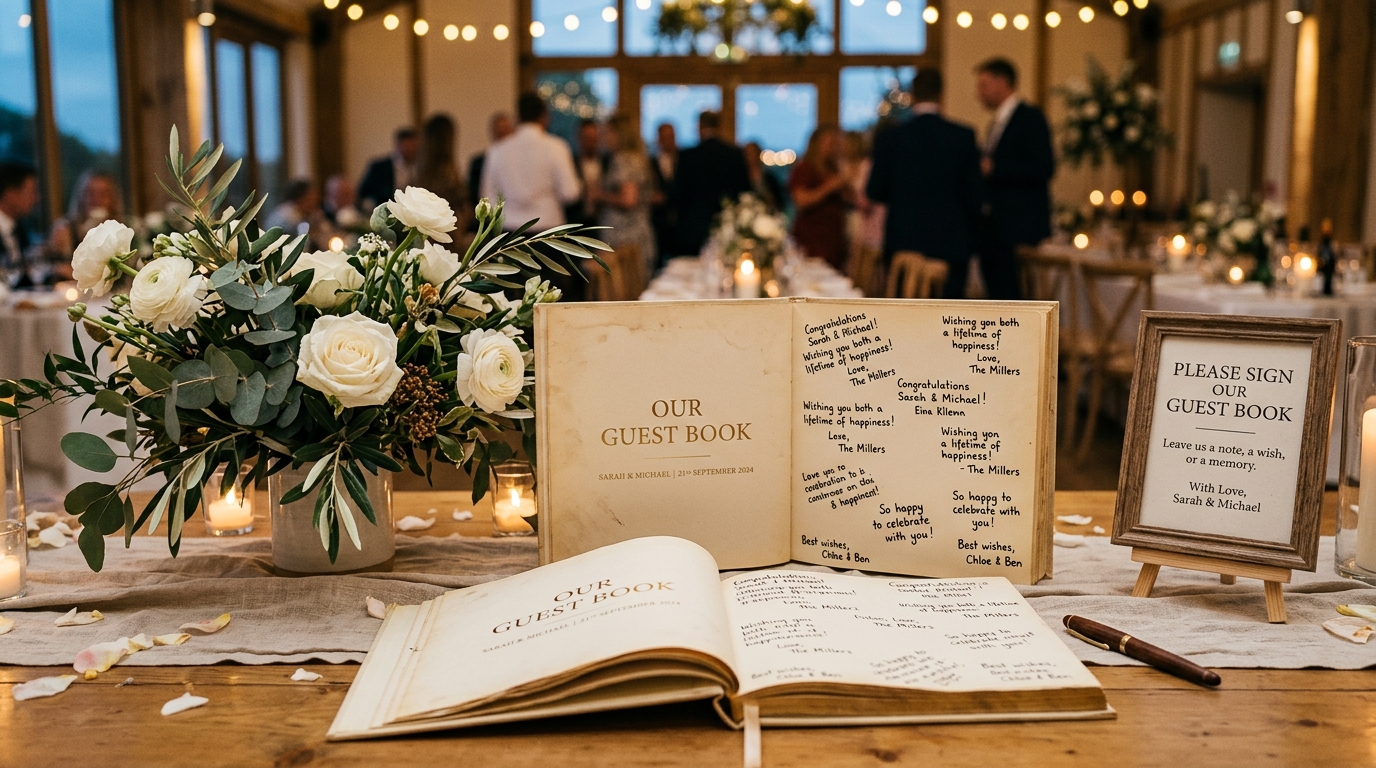 OUR
GUEST BOOK
SARAH & MICHAEL | 21ST SEPTEMBER 2024
Congratulations
Sarah & Michael!
Wishing you both a
lifetime of happiness!
Love,
The
Wishing you both
a lifetime of
happiness!
Love,
The Millers
Congratulations
Sarah & Michael!
Wishing you both a
lifetime of happiness!
Love,
The Millers
Wishing you
a lifetime of
happiness!
- The Millers
Love you to
& happinent!
So happy
to celebrate
with you!
So happy to
celebrate with
you!
Best wishes,
Chloe & Ben
Best wishes,
Chloe & Ben
PLEASE SIGN
OUR
GUEST BOOK
Leave us a note, a wish,
or a memory.
With Love,
Sarah & Michael
OUR
GUEST BOOK
SARAH & MICHAEL | 21ST SEPTEMBER 2024
The Millers
Love,
The Millers
The Millers
Love,
The Millers
So happy to
with us!
So happy to
Best wishes,
Chloe & Ben
Best wishes,
Chloe & Ben